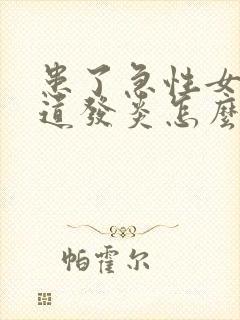 患了急性女
道發炎怎麼
帕霍尔